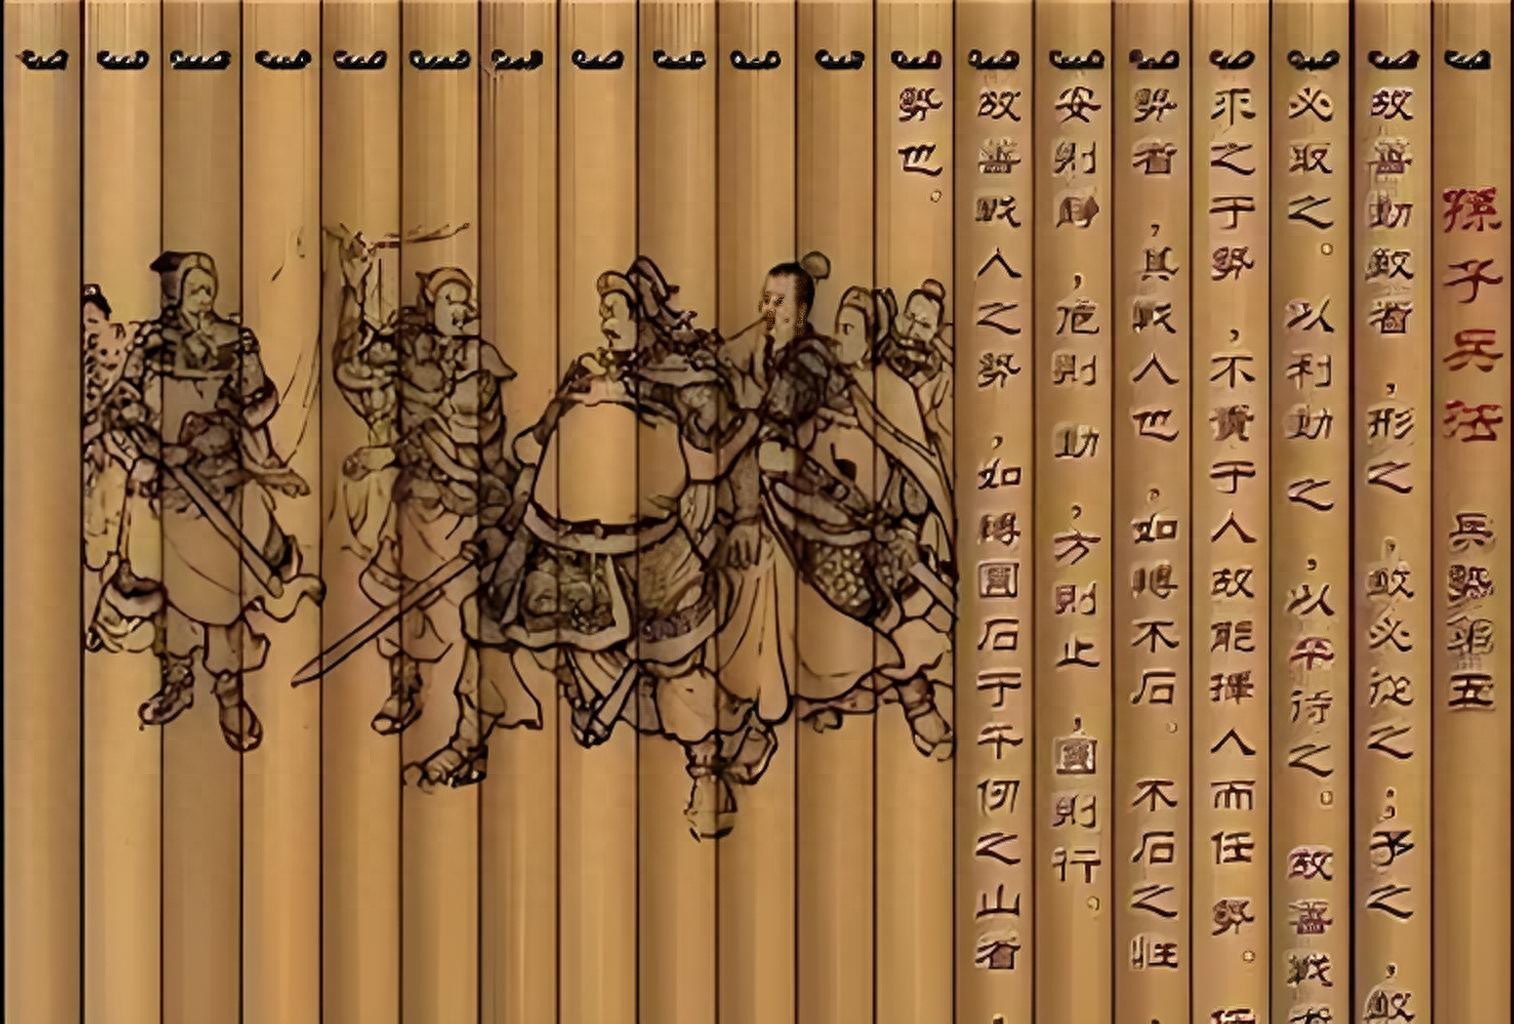 孫子兵法 兵勢第五
故善動敵者，形之，敵必從之；予之，敵
必取之。以利動之，以卒待之。故善戰者
求之于勢，不責于人故能擇人而任勢。任
勢者，其戰人也，如轉木石。木石之性，
安則靜，危則動，方則止，圓則行。
故善戰人之勢，如轉圓石于千仞之山者，
勢也。